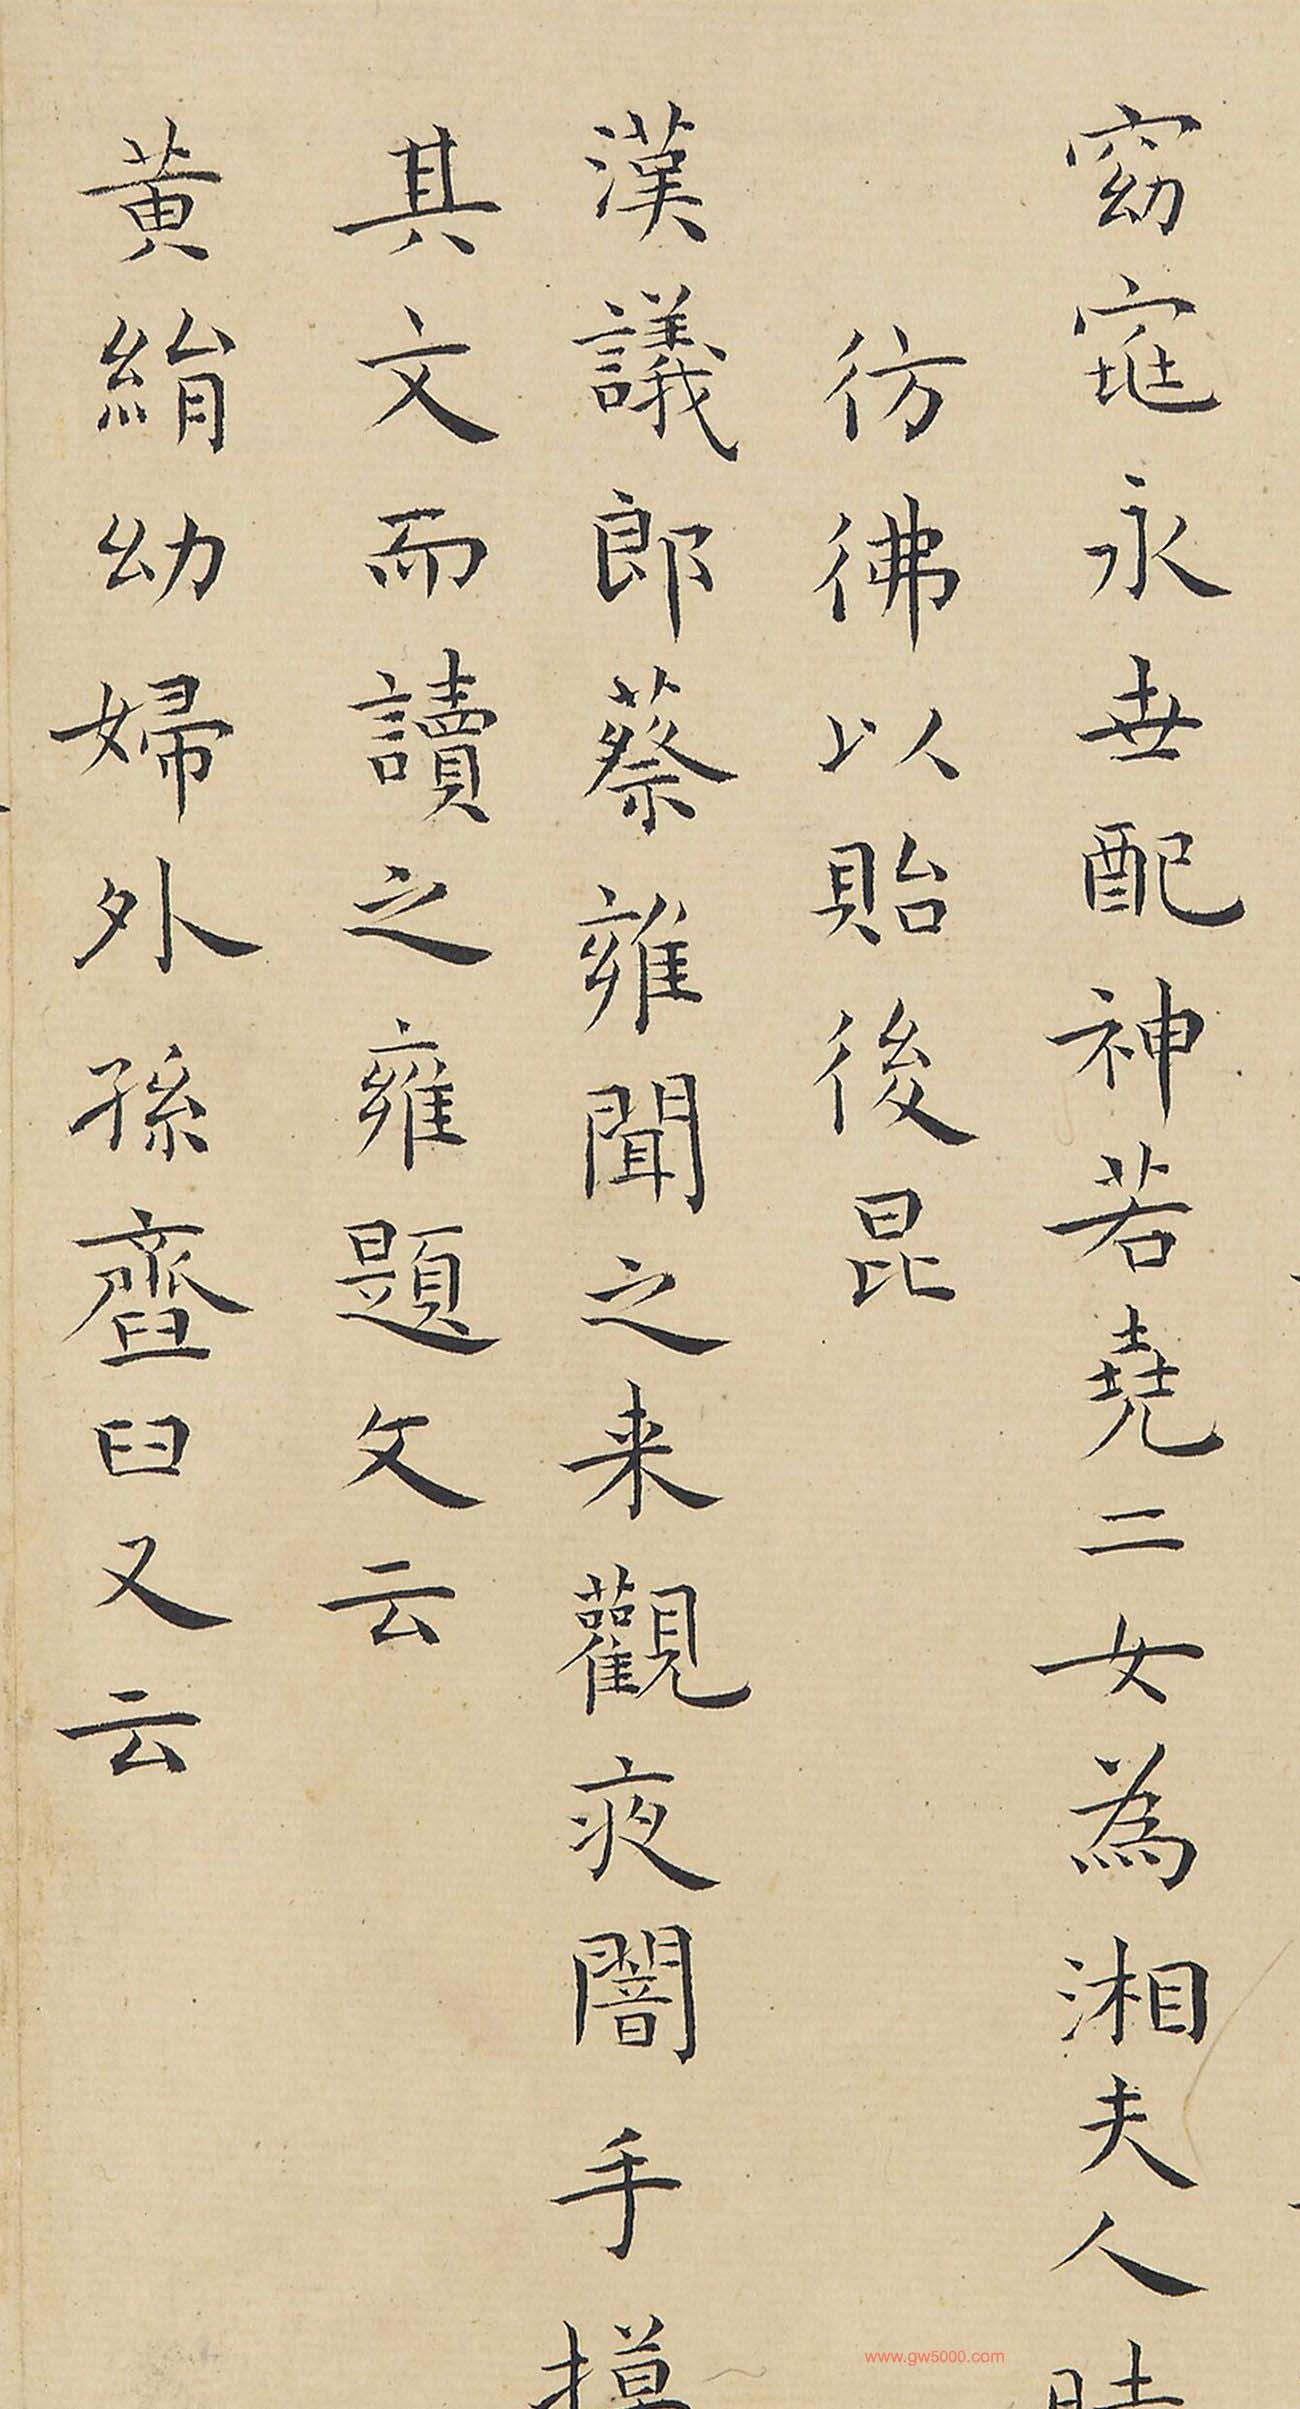 窈窕永世配神若堯二女為湘夫人時
彷彿以貽後昆
漢議郎蔡雍聞之来觀夜闇手摸
其文而讀之雍題文云
黃絹幼婦外孫齏臼又云
www.gw5000.com